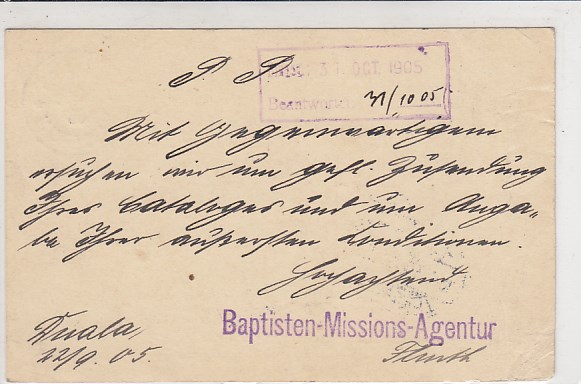 P P
31. OCT. 1905
Beantwortet 31/10 05
Mit Gegenwärtigem
ersuchen wir um gefl. Zusendung
Ihres Cataloges und um Anga-
be Ihrer äußersten Conditionen.
Hochachtend
Baptisten-Missions-Agentur
Duala,
22/9. 05.